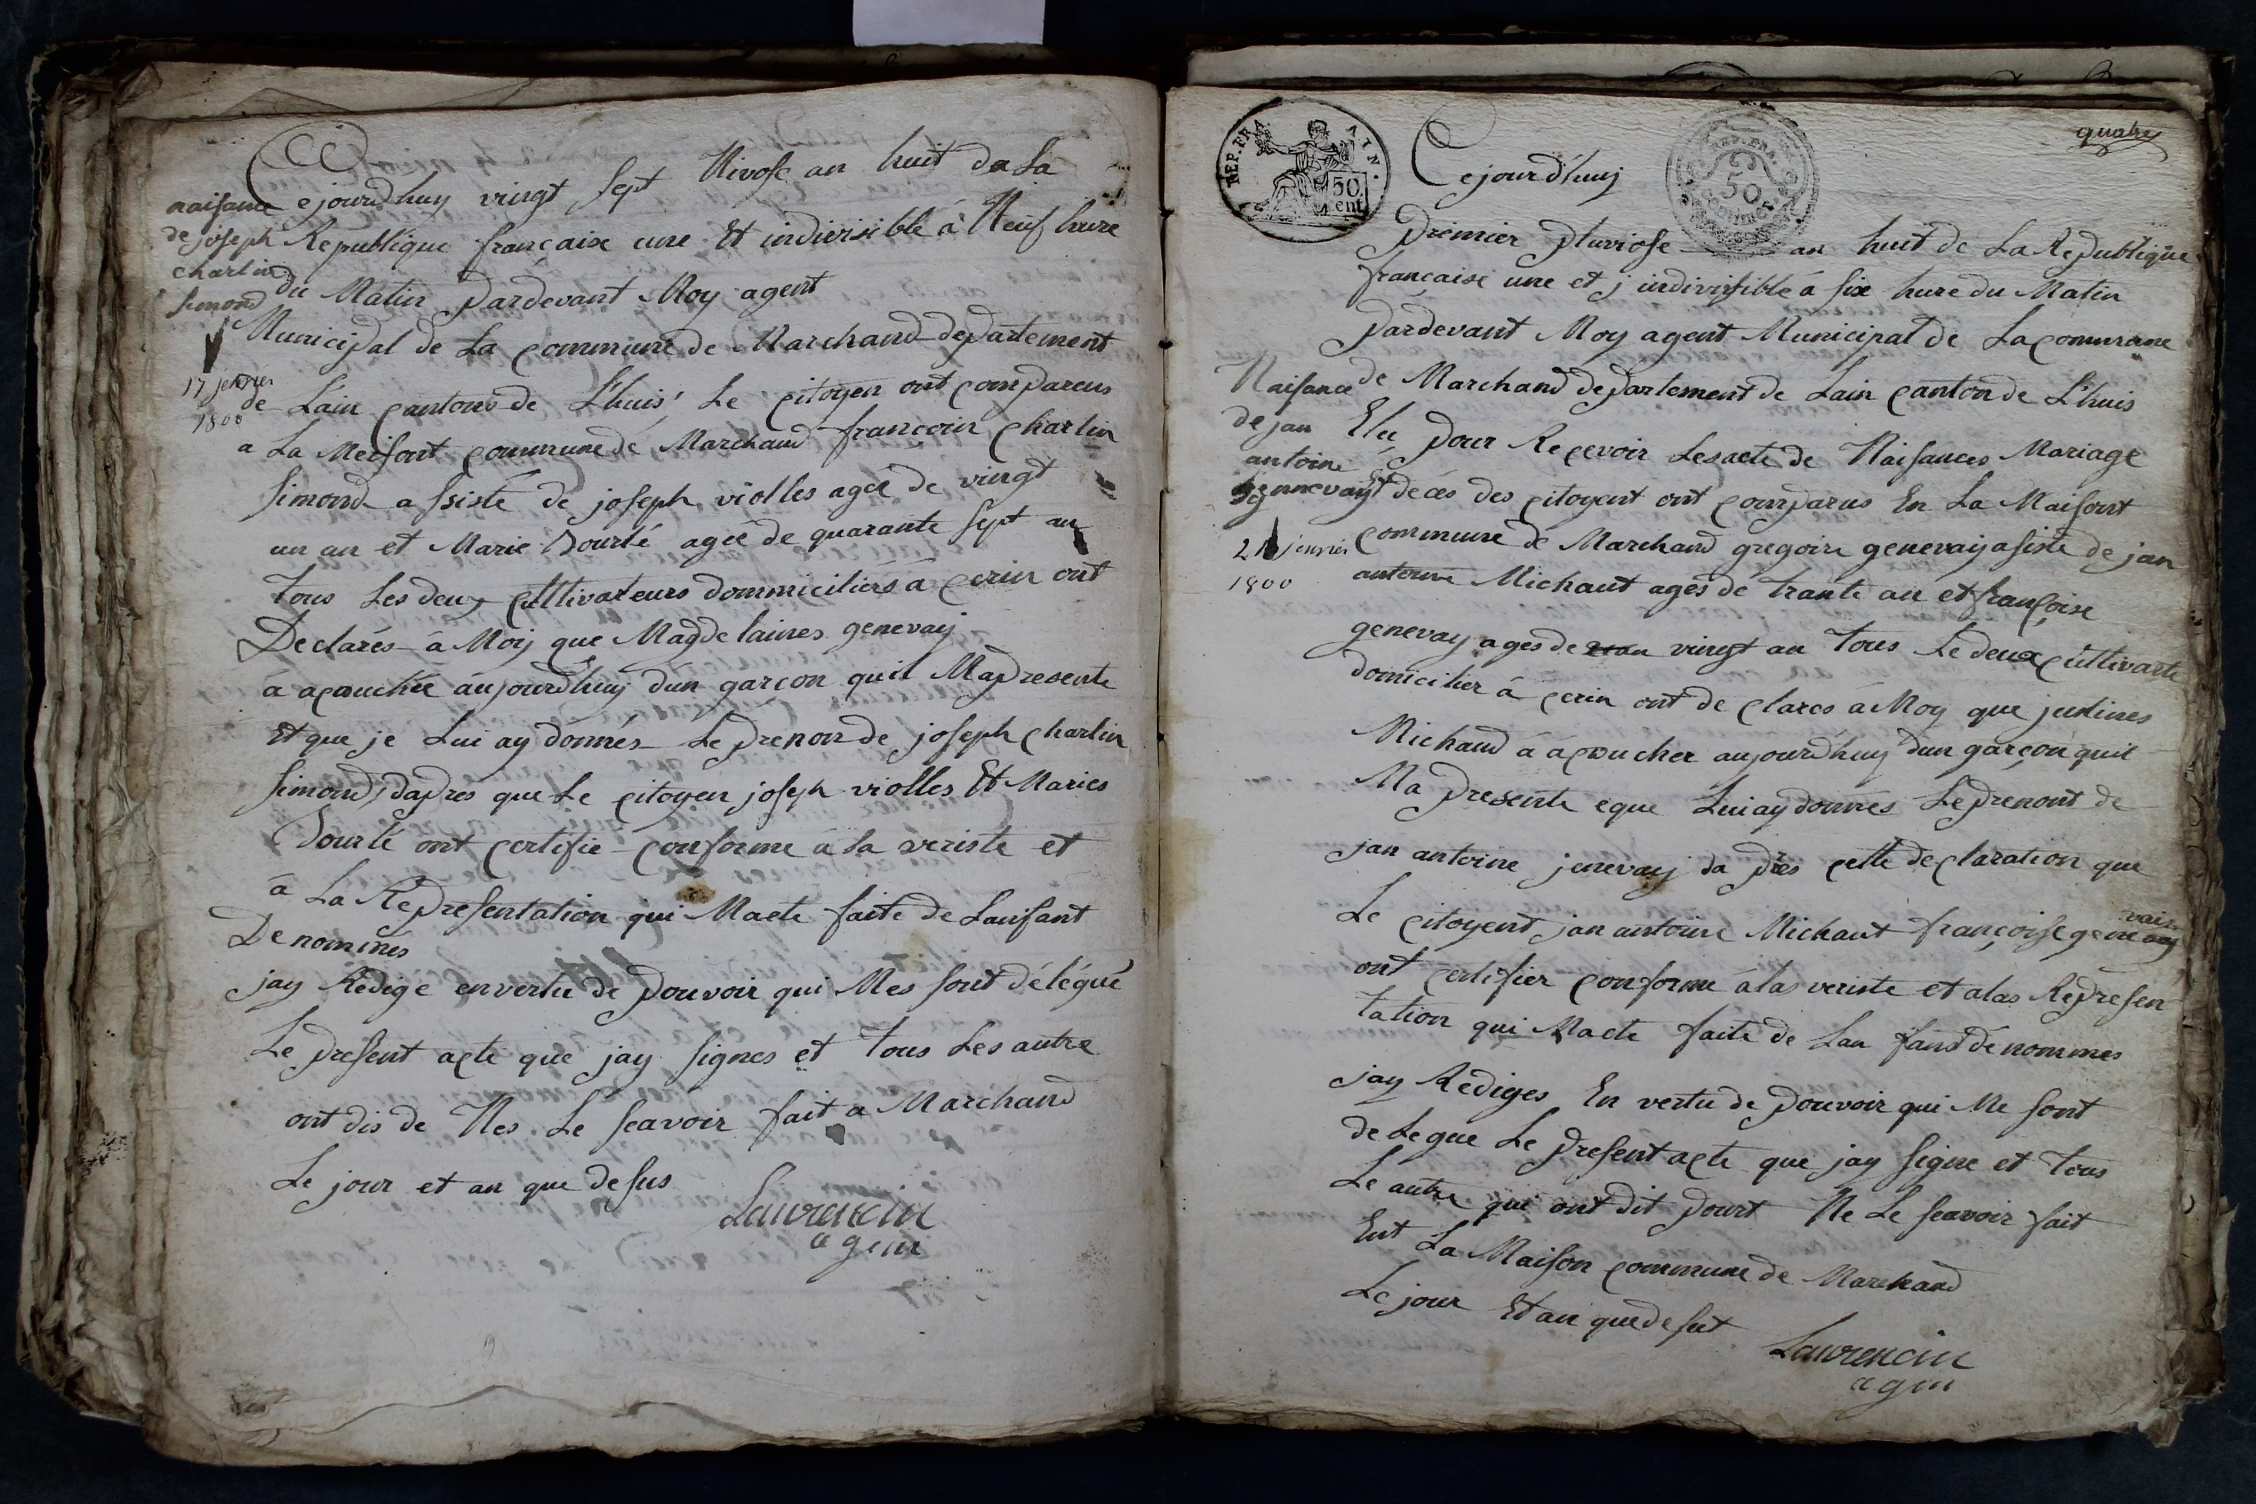 Cejourdhuy vingt sept Nivose an huit de La
Republique française une Et indivisible á Neuf hure
du Matin pardevant Moy agent
Municipal de La commune de Marchand departement
de Lain cantons de Lhuis Le citoyen ont comparus
a La Meisont commune de Marchand françois charlin
simond assisté de joseph violles agée de vingt
un an et Marie Bourlé agée de quarante sept an
Tous Les deux cultivateurs dommiciliérs á cerin ont
Declarés á Moy que Magdelaines genevay
á acouchée áujourdhuy dún garcon quil Mapresente
Et que je Lui ay donnés Le prenon de joseph charlin
simond dapres que Le citoyen joseph violles Et Maries
Bourlé ont certifié conforme á La veriste et
á La Representation qui Macte faite de Lanfant
De nommés
jay Redigé envertu de pouvoir qui Mes sont délégué
Le present acte que jay signes et Tous Les autre
ont dis de Nes Le scavoir fait a Marchand
Le jour et an que desus
Laurencin
agent
naisance
de joseph
charlin
simond
17 jenvier
1800
quatre
REP. FRA.
AIN.
50
cent
REP. FRA.
50
centimes
Cejourdhuy
premier pluviose an huit de La Republique
francaise une et jindivissible á six hure du Matin
pardevant Moy agent Municipal de La commune
de Marchand departement de Lain canton de Lhuis
Elu pour Recevoir Les acte de Naisances Mariage
Et décés des citoyent ont comparus En La Maisont
commune de Marchand gregoire genevay asisté de jan
antoine Michaut agés dé Trante an et françoise
genevay ages de vingt an Tous Le deux cultivarte
domicilier á cerin ont de clares á Moy que justines
Michaud á acoucher aujourdhuy dun garçon quil
Ma presente eque Lui ay donnés Le prenont de
jan antoine jenevay da prés cette declaration que
Le citoyent jan antoine Michaut françoise genevay
vais
ont certifier conforme á las veriste et alas Represen
tation qui Macte faite de Lan fant dénommes
jay Rediges En vertu de pouvoir qui Me sont
delegue Le present acte que jay signe et Tous
Le autre qui ont dit pourt Ne Le scavoir fait
Ent La Maison commune de Marchand
Le jour Et an que de sut
Laurencin
agent
Naisance
de jan
antoine
gennevay
21 jenvier
1800